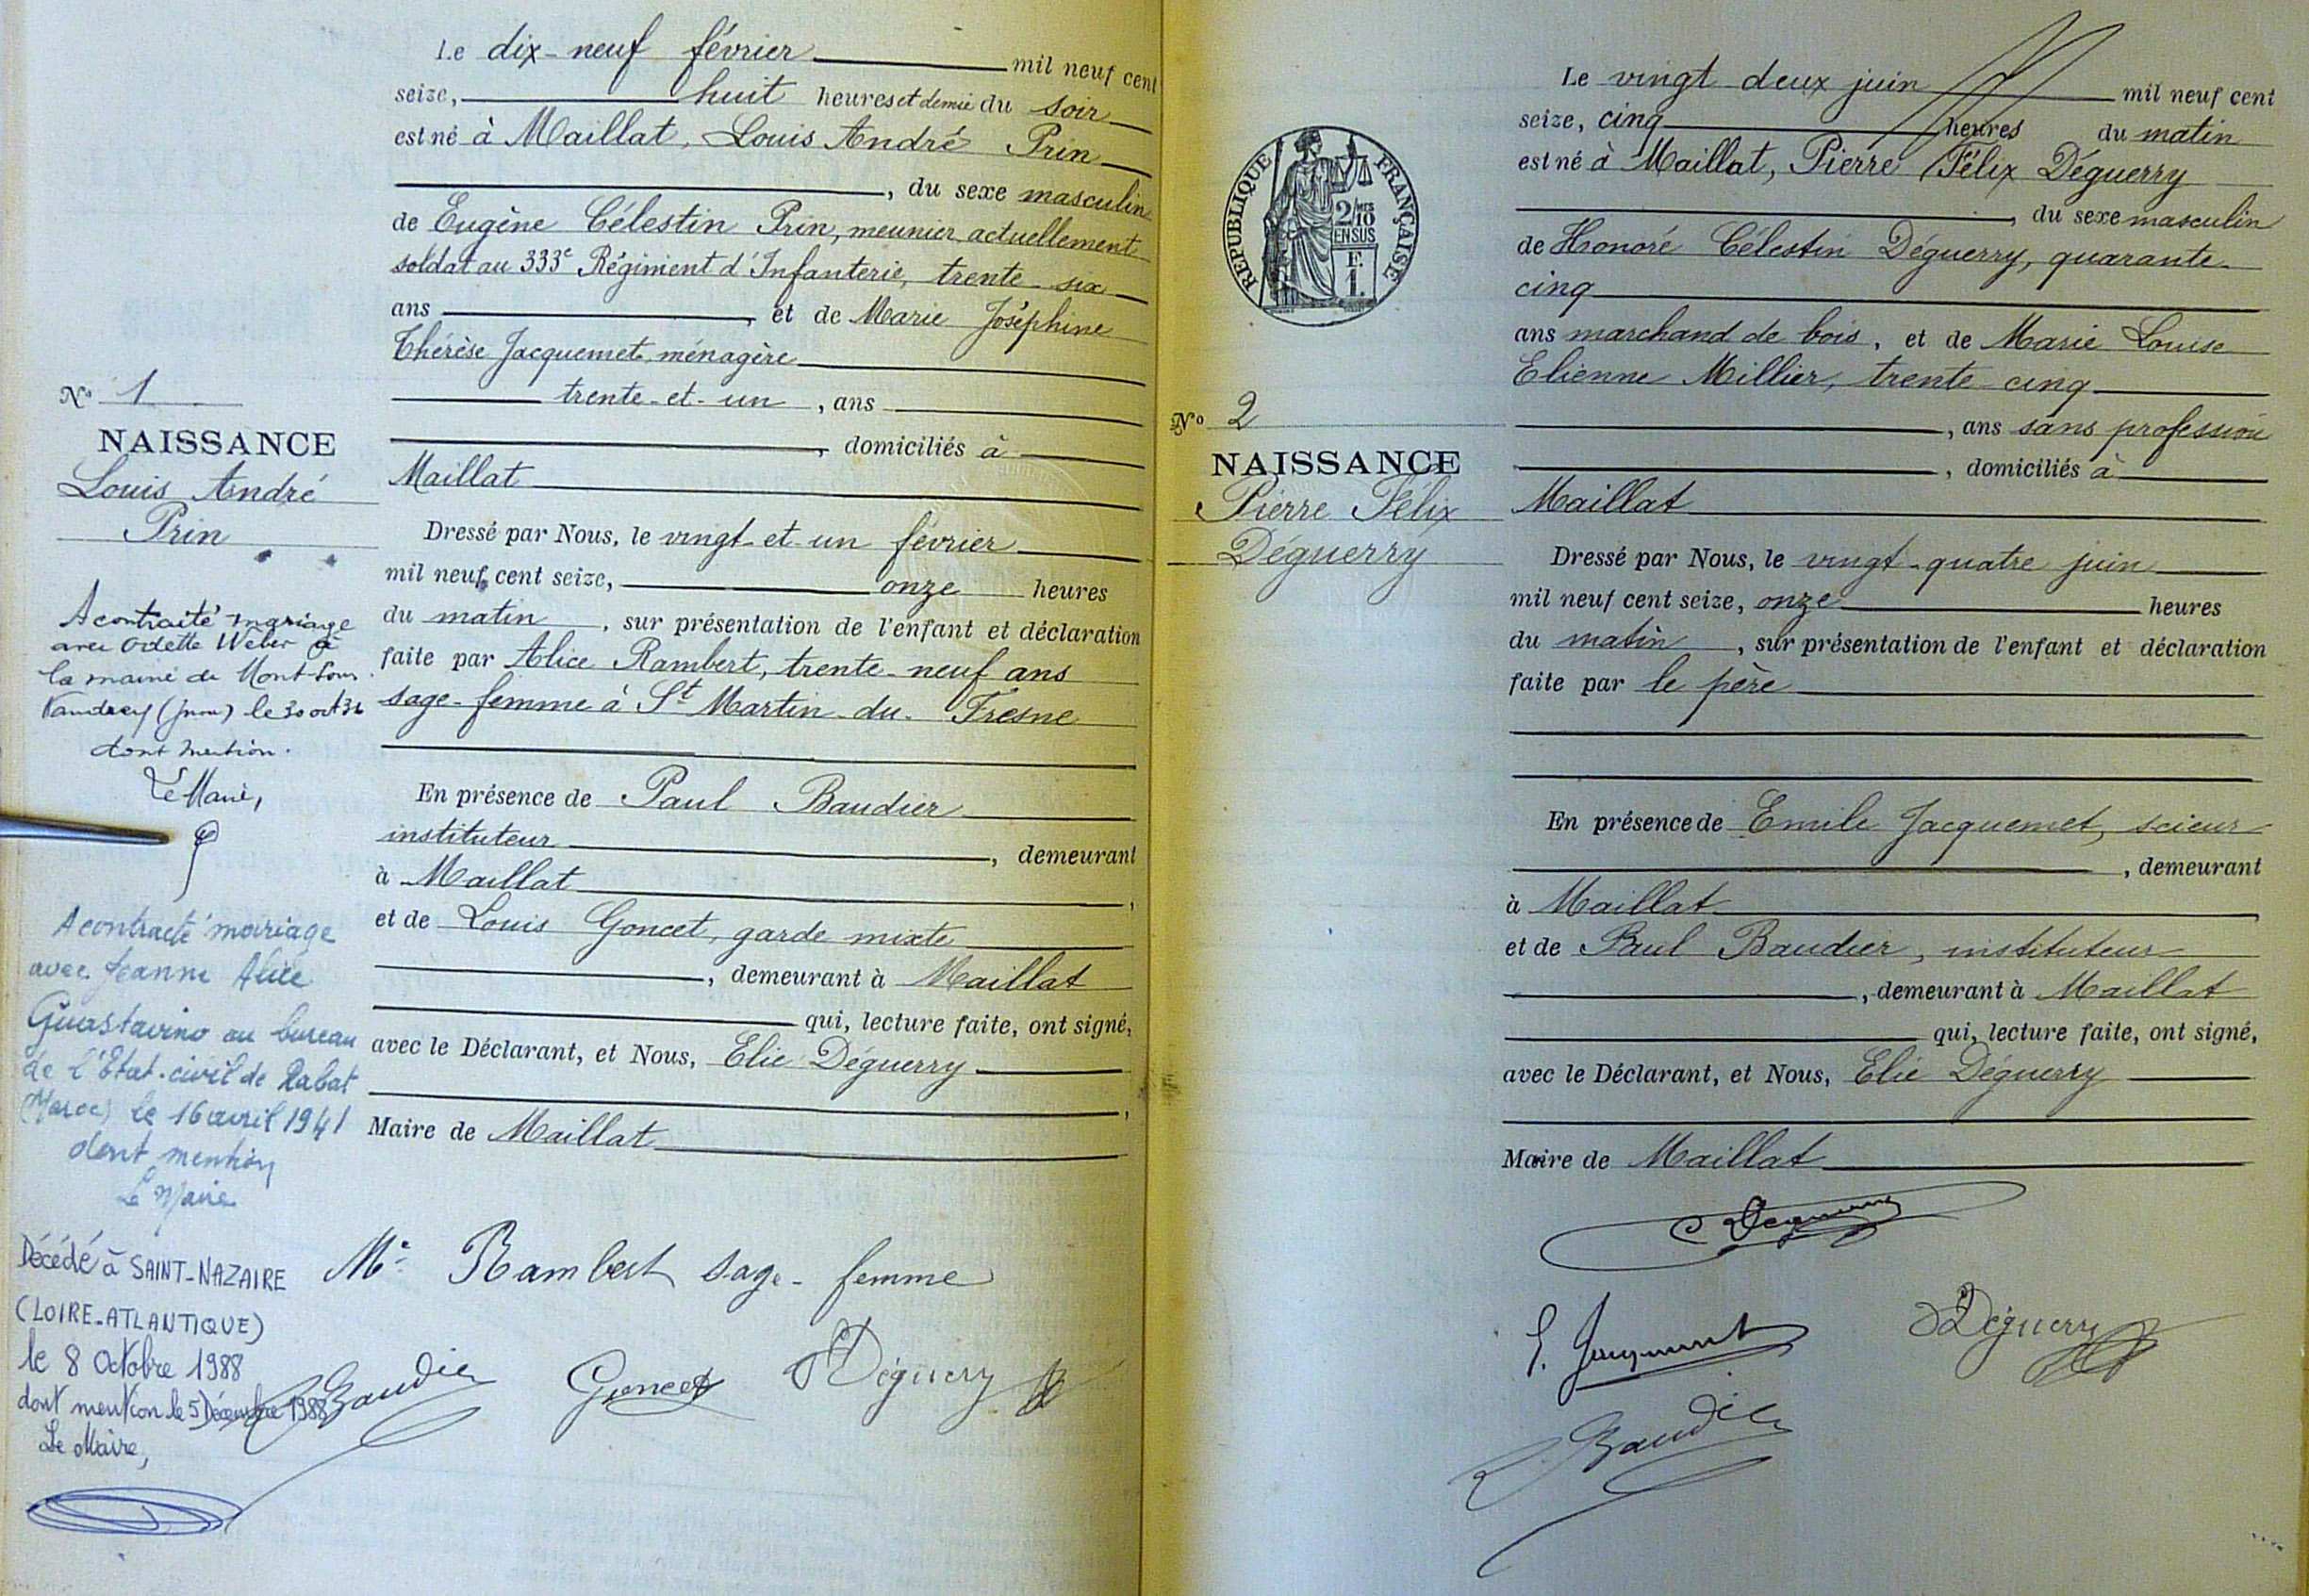 Le dix-neuf février mil neuf cent
seize, huit heures et demie du soir
est né à Maillat, Louis André Prin
, du sexe masculin
de Eugène Célestin Prin, meunier, actuellement
soldat au 333e Régiment d'Infanterie, trente-six
ans , et de Marie Joséphine
Thérèse Jacquemet, ménagère
trente-et-un , ans
, domiciliés à
Maillat
Dressé par Nous, le vingt-et-un février
mil neuf cent seize, onze heures
du matin , sur présentation de l'enfant et déclaration
faite par Alice Rambert, trente-neuf ans
sage-femme à St Martin-du-Fresne
En présence de Paul Baudier
instituteur , demeurant
à Maillat ,
et de Louis Goncet, garde mixte
, demeurant à Maillat
qui, lecture faite, ont signé,
avec le Déclarant, et Nous, Elie Déguerry
,
Maire de Maillat
Me Rambert sage-femme
Baudier Goncet Déguerry
No 1
NAISSANCE
Louis André
Prin
A contracté mariage
avec Odette Weber à
la mairie de Mont-sous-
Vaudrey (Jura) le 30 oct 36
dont mention.
Le Maire,
A contracté mariage
avec Jeanne Alice
Guastavino au bureau
de l'Etat-civil de Rabat
(Maroc) le 16 avril 1941
dont mention
Le Maire
Décédé à SAINT-NAZAIRE
(LOIRE-ATLANTIQUE)
le 8 Octobre 1988
dont mention le 5 Décembre 1988
Le Maire,
RÉPUBLIQUE FRANÇAISE
2/10
EN SUS
F.
1.
No 2
NAISSANCE
Pierre Félix
Déguerry
Le vingt deux juin mil neuf cent
seize, cinq heures du matin
est né à Maillat, Pierre Félix Déguerry
, du sexe masculin
de Honoré Célestin Déguerry, quarante-
cinq
ans marchand de bois, et de Marie Louise
Etienne Millier, trente-cinq
, ans sans profession
, domiciliés à
Maillat
Dressé par Nous, le vingt-quatre juin
mil neuf cent seize, onze heures
du matin , sur présentation de l'enfant et déclaration
faite par le père
En présence de Emile Jacquemet, scieur
, demeurant
à Maillat ,
et de Paul Baudier, instituteur
, demeurant à Maillat
qui, lecture faite, ont signé,
avec le Déclarant, et Nous, Elie Déguerry
Maire de Maillat
C Deguerry
E. Jacquemet Déguerry
Baudier